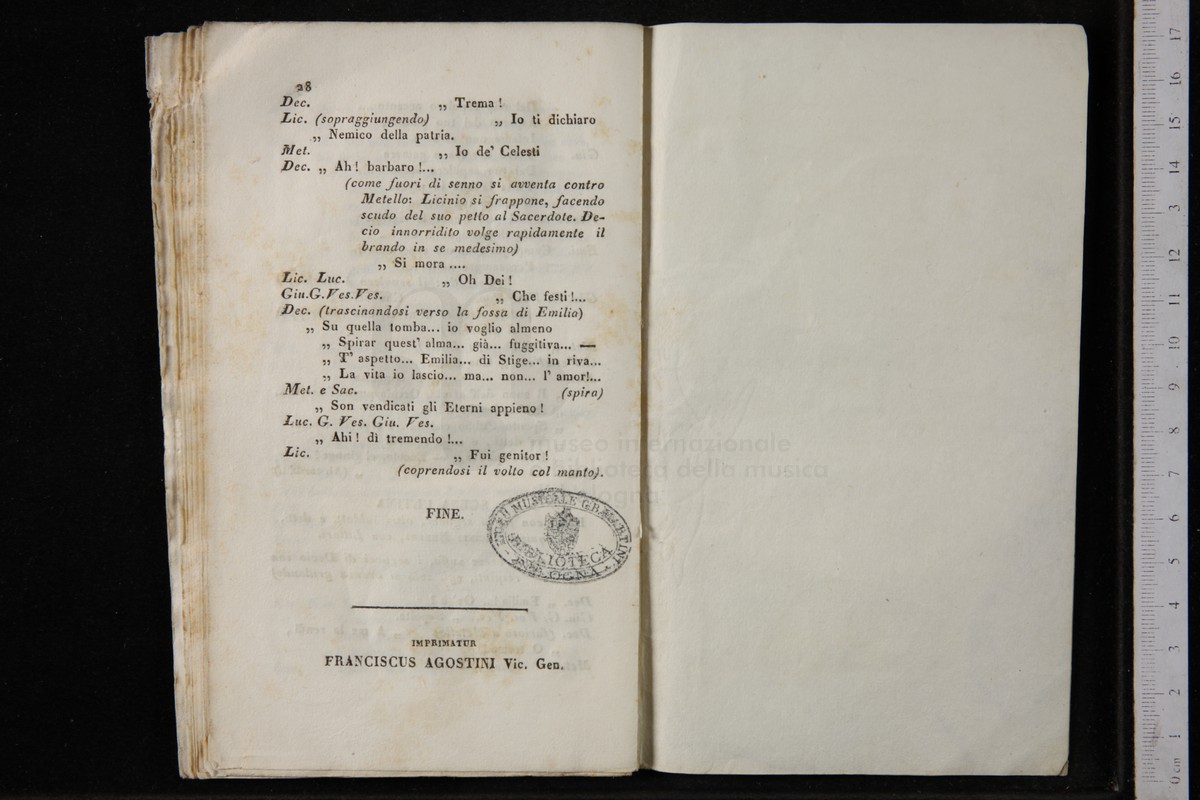 28
Dec. „ Trema !
Lic. (sopraggiungendo) „ Io ti dichiaro
„ Nemico della patria.
Met. „ Io de' Celesti
Dec. „ Ah ! barbaro !...
(come fuori di senno si avventa contro
Metello: Licinio si frappone, facendo
scudo del suo petto al Sacerdote. De-
cio innorridito volge rapidamente il
brando in se medesimo)
„ Si mora ....
Lic. Luc. „ Oh Dei !
Giu.G.Ves.Ves. „ Che festi !...
Dec. (trascinandosi verso la fossa di Emilia)
„ Su quella tomba... io voglio almeno
„ Spirar quest' alma... già... fuggitiva... —
„ T' aspetto... Emilia... di Stige... in riva...
„ La vita io lascio... ma... non... l' amor!...
Met. e Sac. (spira)
„ Son vendicati gli Eterni appieno !
Luc. G. Ves. Giu. Ves.
„ Ahi ! dì tremendo !...
Lic. „ Fui genitor !
(coprendosi il volto col manto).
FINE.
BIBLIOTECA
BOLOGNA
IMPRIMATUR
FRANCISCUS AGOSTINI Vic. Gen.
museo internazionale
biblioteca della musica
bologna
0 cm 1 2 3 4 5 6 7 8 9 10 11 12 13 14 15 16 17